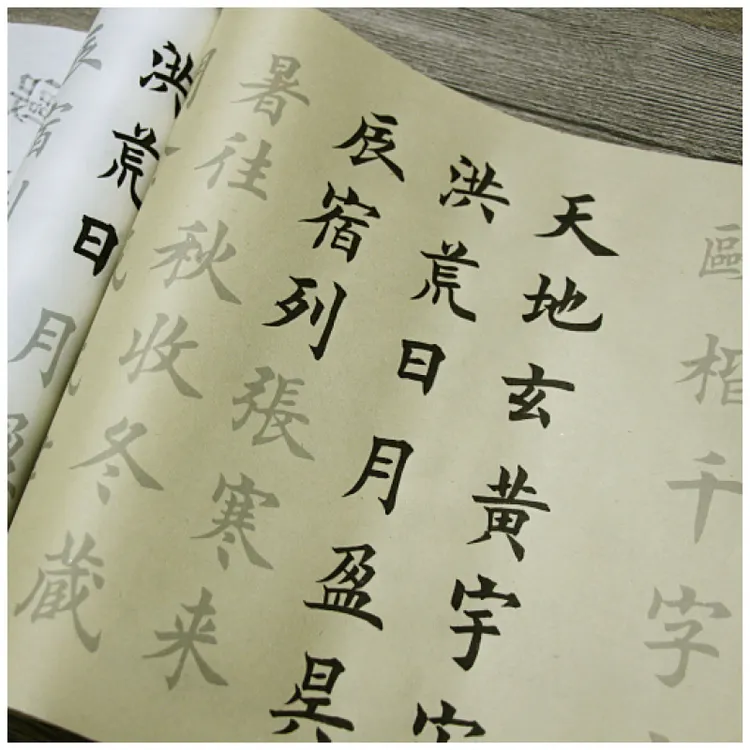 歐楷千字
天地玄黄宇
洪荒日月盈昃
辰宿列張寒来
暑往秋收冬蔵
洪荒日月盈
宿列